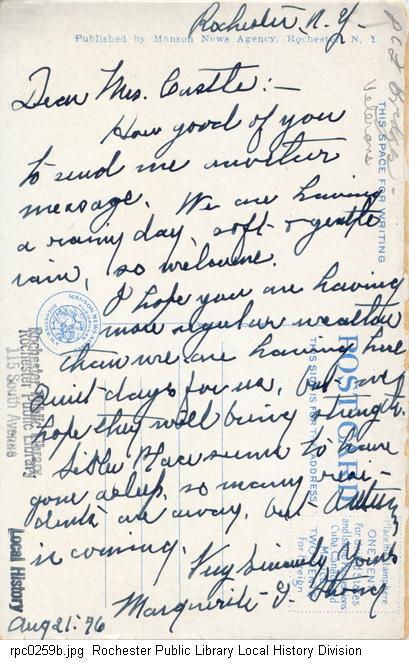 Rochester, N.Y.
Published by Manson News Agency, Rochester, N. Y.
Dear Mrs. Castle:—
How good of you
to send me another
message. We are having
a rainy day, soft & gentle
rain, so welcome.
I hope you are having
more regular weather
than we are having here
Quiet days for us, but we
hope they will bring strength.
Sibley Place seems to have
gone asleep, so many resi-
dents are away, but Autumn
is coming.
Very Sincerely Yours
Marguerite J. Strong
Aug 21-'96
Veterans
THIS SPACE FOR WRITING
POST CARD
THIS SIDE IS FOR THE ADDRESS
MANSON NEWS
Place Stamp here
ONE CENT
For United States
and Island Possessions
Cuba, Canada and
Mexico
TWO CENTS
for Foreign
Rochester Public Library
Rochester Public Library
115 South Avenue
Local History
rpc0259b.jpg Rochester Public Library Local History Division